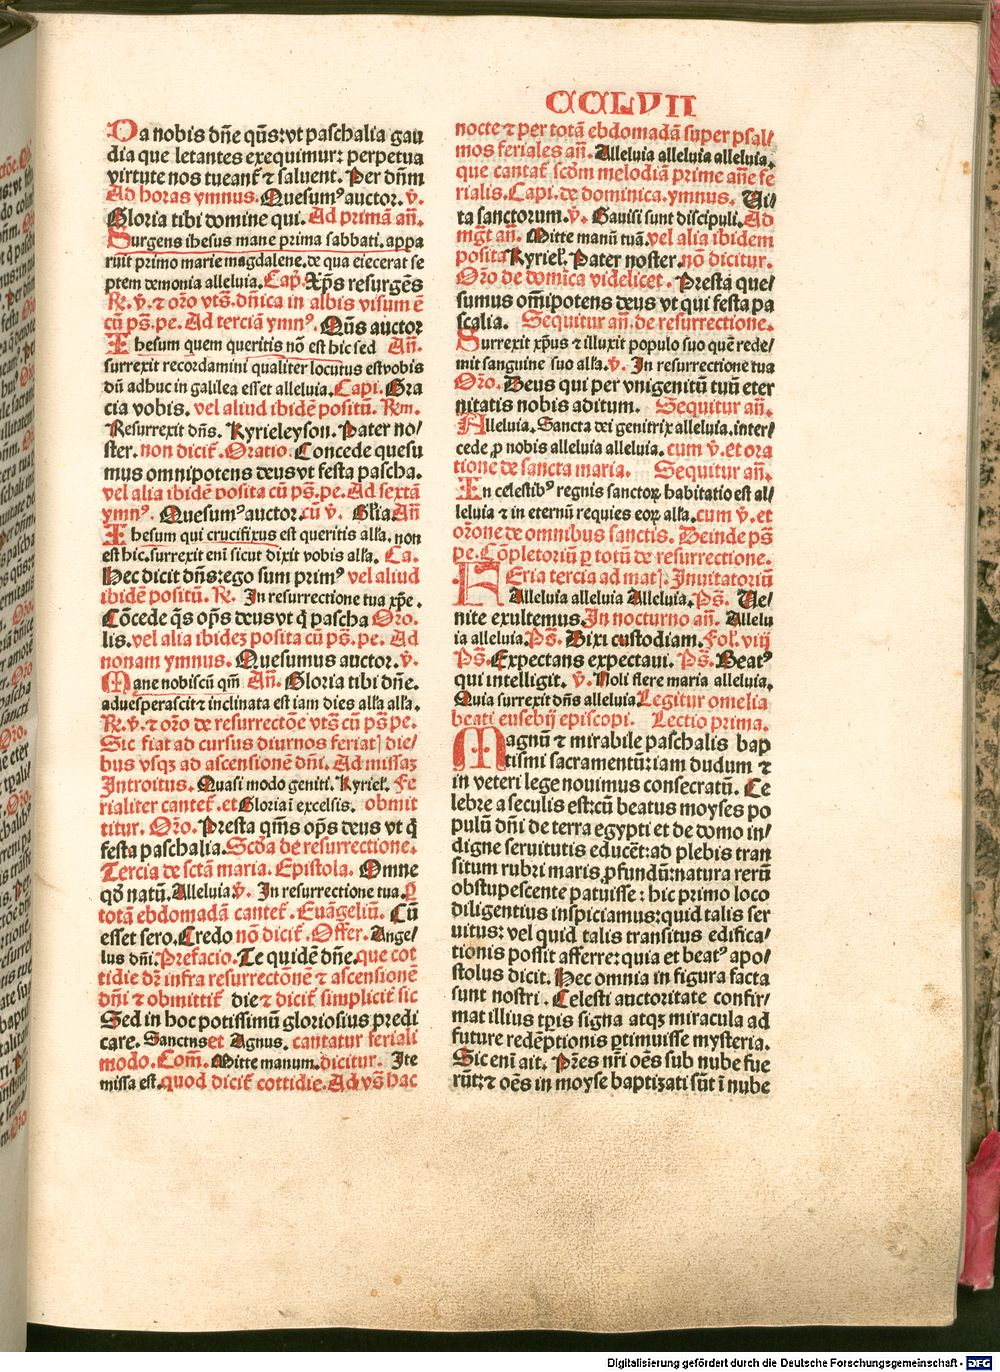 CCLVII
Da nobis dñe q̃s: vt paschalia gau
dia que letantes exequimur: perpetua
virtute nos tueant᷑ ⁊ saluent. Per dñm
Ad horas ymnus. Quesumꝰ auctor. v̄.
Gloria tibi domine qui. Ad primā añ.
Surgens ihesus mane prima sabbati. appa
ruit primo marie magdalene. de qua eiecerat se
ptem demonia alleluia. Cap̄. Xp̄s resurgēs
R̄. v̄. ⁊ oro vts̄. dñica in albis visum ē
cū ps̄. pe. Ad terciā ymnꝰ. Qūs auctor
Ihesum quem queritis nō est hic sed Añ.
surrexit recordamini qualiter locutus est vobis
dū adhuc in galilea esset alleluia. Capi. Gra
cia vobis. vel aliud ibidē positū. R̄m.
Resurrexit dñs. Kyrieleyson. Pater no/
ster. non dicit᷑. Oratio. Concede quesu
mus omnipotens deus vt festa pascha.
vel alia ibidē posita cū ps̄. pe. Ad sextā
ymnꝰ. Quesumꝰ auctor. cū v̄. Gl̄ia Añ
Ihesum qui crucifixus est queritis all̄a. non
est hic. surrexit enī sicut dixit vobis all̄a. Ca.
Hec dicit dñs: ego sum primꝰ vel aliud
ibidē positū. R̄. In resurrectione tua xp̄e.
Cōcede q̄s op̄s deus vt q̄ pascha Oro.
lis. vel alia ibidez posita cū ps̄. pe. Ad
nonam ymnus. Quesumus auctor. v̄.
Mane nobiscū qm̄ Añ. Gloria tibi dñe.
aduesperascit ⁊ inclinata est iam dies all̄a all̄a.
R̄. v̄. ⁊ oro de resurrectōe vts̄ cū ps̄ pe.
Sic fiat ad cursus diurnos feriat᷑ die/
bus vsqꝫ ad ascensionē dñi. Ad missaꝫ
Introitus. Quasi modo geniti. Kyriel̄. Fe
rialiter cantet᷑. et Gloria ī excelsis. obmit
titur. Oro. Presta qm̄s op̄s deus vt q̄
festa paschalia. Scd̄a de resurrectione.
Tercia de sctā maria. Epistola. Omne
qd̄ natū. Alleluia v̄. In resurrectione tua. ꝑ
totā ebdomadā cantet᷑. Euāgeliū. Cū
esset sero. Credo nō dicit᷑. Offer. Ange/
lus dñi. Prefacio. Te quidē dñe. que cot
tidie dr̄ infra resurrectōnē ⁊ ascensionē
dñi ⁊ obmittit᷑ die ⁊ dicit᷑ simplicit᷑ sic
Sed in hoc potissimū gloriosius predi
care. Sanctus et Agnus. cantatur feriali
modo. Com̄. Mitte manum. dicitur. Ite
missa est. quod dicit᷑ cottidie. Ad vs̄ hac
nocte ⁊ per totā ebdomadā super psal/
mos feriales añ. Alleluia alleluia alleluia.
que cantat᷑ scdm̄ melodiā prime añe fe
rialis. Capi. de dominica. ymnus. Vi/
ta sanctorum. v̄. Gauisi sunt discipuli. Ad
mgt̄ añ. Mitte manū tuā. vel alia ibidem
posita Kyriel̄. Pater noster. nō dicitur.
Oro de domīca videlicet. Presta que/
sumus om̄ipotens deus vt qui festa pa
scalia. Sequitur añ. de resurrectione.
Surrexit xp̄us ⁊ illuxit populo suo quē rede/
mit sanguine suo all̄a. v̄. In resurrectione tua
Oro. Deus qui per vnigenitū tuū eter
nitatis nobis aditum. Sequitur añ.
Alleluia. Sancta dei genitrix alleluia. inter/
cede ꝓ nobis alleluia alleluia. cum v̄. et ora
tione de sancta maria. Sequitur añ.
In celestibꝰ regnis sanctoꝝ habitatio est al/
leluia ⁊ in eternū requies eoꝝ all̄a. cum v̄. et
orōne de omnibus sanctis. Deinde ps̄
pe. Cōpletoriū ꝑ totū de resurrectione.
Feria tercia ad mat᷑. Inuitatoriū
Alleluia alleluia Alleluia. Ps̄. Ve/
nite exultemus. In nocturno añ. Allelu
ia alleluia. Ps̄. Dixi custodiam. Fol̄. viij
Ps̄. Expectans expectaui. Ps̄. Beatꝰ
qui intelligit. v̄. Noli flere maria alleluia.
Quia surrexit dñs alleluia. Legitur omelia
beati eusebij episcopi. Lectio prima.
Magnū ⁊ mirabile paschalis bap
tismi sacramentū: iam dudum ⁊
in veteri lege nouimus consecratū. Ce
lebre a seculis est: cū beatus moyses po
pulū dñi de terra egypti et de domo in/
digne seruitutis educēt: ad plebis tran
situm rubri maris ꝓfundū: natura rerū
obstupescente patuisse: hic primo loco
diligentius inspiciamus: quid talis ser
uitus: vel quid talis transitus edifica/
tionis possit afferre: quia et beatꝰ apo/
stolus dicit. Hec omnia in figura facta
sunt nostri. Celesti auctoritate confir/
mat illius tp̄is signa atqꝫ miracula ad
future redēptionis ꝑtimuisse mysteria.
Sic enī ait. Pr̄es nr̄i oēs sub nube fue
rūt: ⁊ oēs in moyse baptizati sūt ī nube
Digitalisierung gefördert durch die Deutsche Forschungsgemeinschaft - DFG